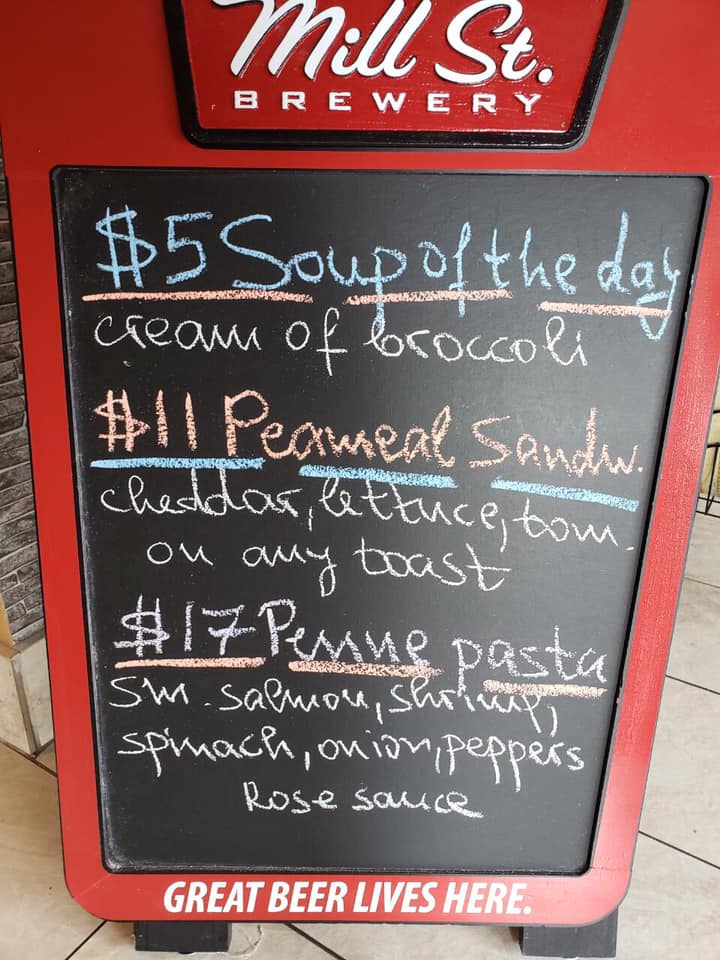 Mill St.
BREWERY
$5 Soup of the day
cream of broccoli
$11 Peameal Sandw.
cheddar, lettuce, tom.
on any toast
$17 Penne pasta
sm. salmon, shrimp,
spinach, onion, peppers
Rose sauce
GREAT BEER LIVES HERE.